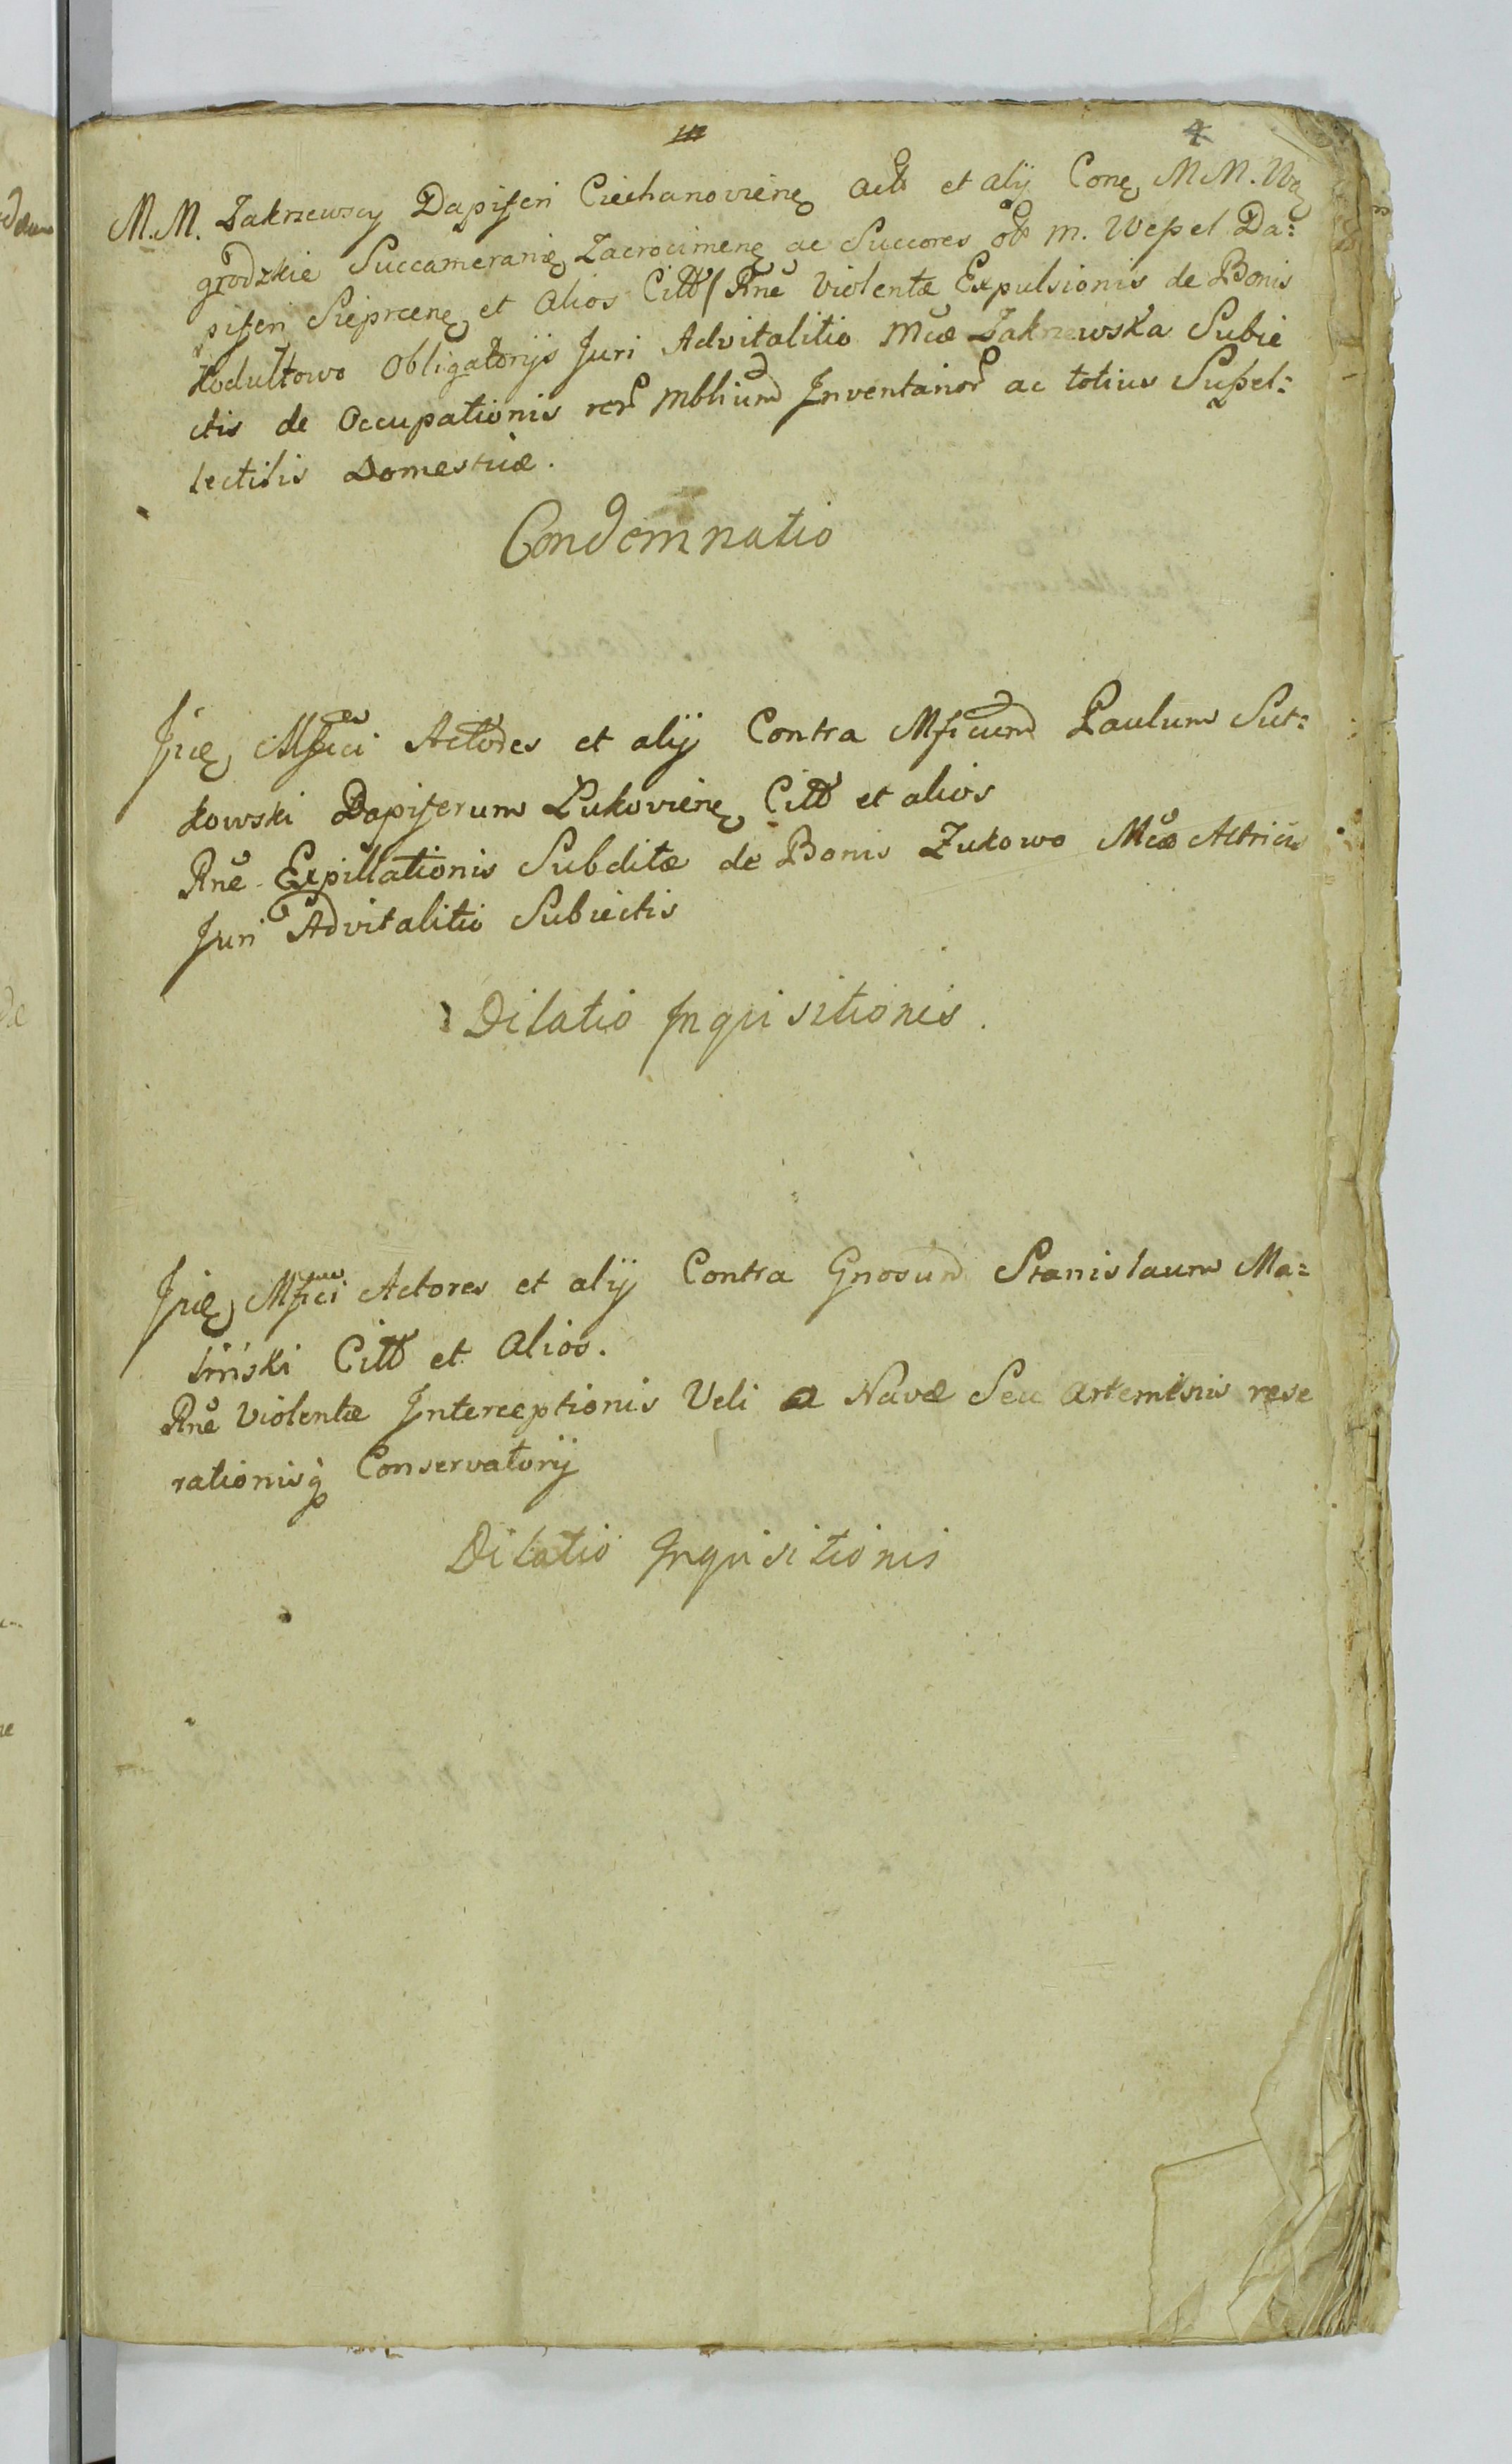 4
M.M. Zakrzewscy Dapiferi Ciechanoviene actt et alij Cone M M. Wę
grodzkie Succameranie, Zacrocimene ac Succores ob M. Wessel Da:
piferi Sieprcene et alios Citt / Rne Violentæ Expulsionis de Bonis
Kodułtowo Obligatorijs Juri Advitalitio Mcæ Zakrzewska Subie
ctis de Occupationis rer Mblium Inventarior ac totius Supel:
lectilis Domesticæ.
Condemnatio
Mfici Actores et alij Contra Mficum Paulum Sut:
kowski Dapiferum Zukoviene Citt et alios
Rne Expillationis Subditæ de Bonis Zukowo Mcæ Actricis
Juri Advitalitio Subiectis
Dilatio Inquisitionis.
Mfici Actores et alij Contra Gnosum Stanislaum Ma:
liński Citt et alios.
Rne Violentæ Interceptionis Veli a Navæ Seu Artemisiis rese
rationisq Conservatorij
Dilatio Inquisitionis